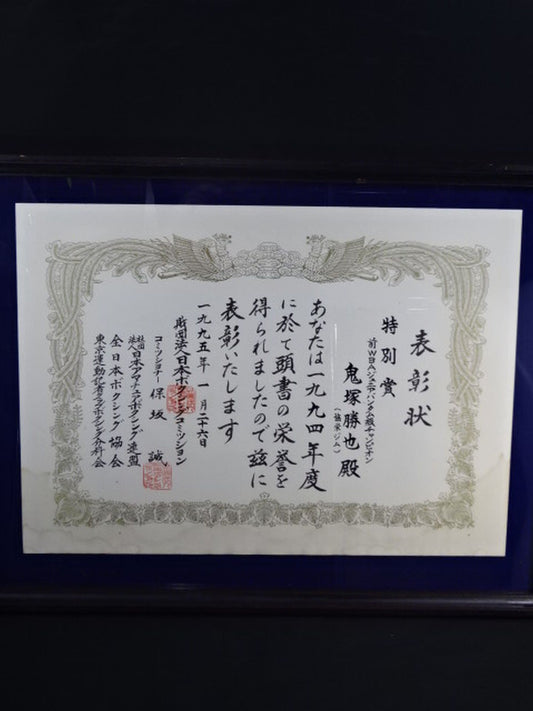 表彰状
特別賞
前WBAジュニア・バンタム級チャンピオン
鬼塚勝也殿
(協栄ジム)
あなたは一九九四年度
に於て頭書の栄誉を
得られましたので茲に
表彰いたします
一九九五年一月二十六日
財団法人日本ボクシングコミッション
コミッショナー 保坂 誠
社団法人日本アマチュアボクシング連盟
全日本ボクシング協会
東京運動記者クラブボクシング分科会